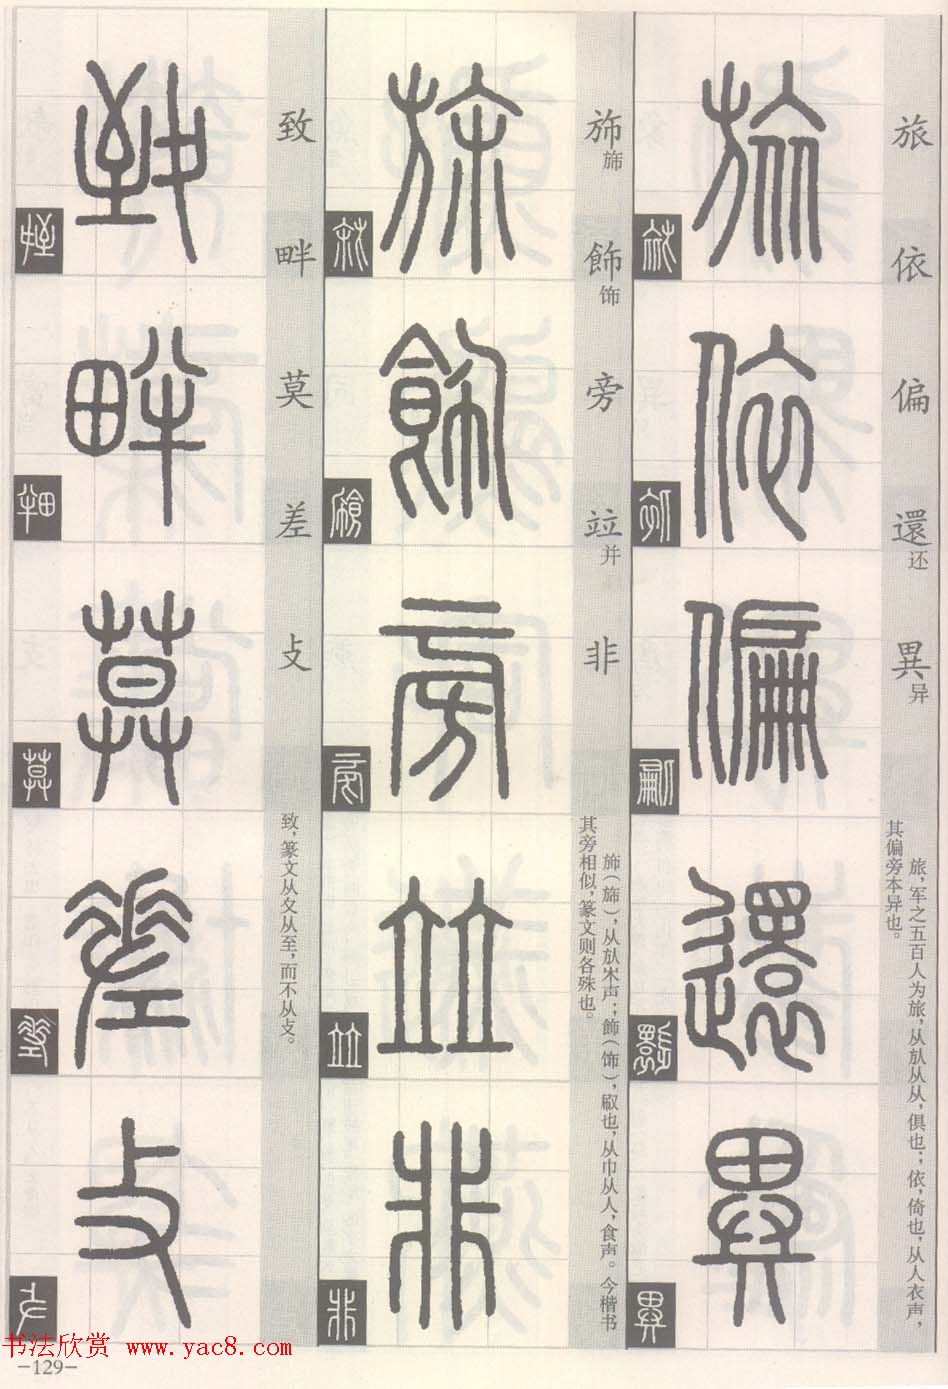 旅依偏還还異异
旅，军之五百人为旅，从㫃从从，俱也；依，倚也，从人衣声，
其偏旁本异也。
旅
依
偏
還
異
㫆旆飾饰旁竝并非
其旁相似，篆文则各殊也。
飾
旁
竝
非
致畔莫差攴
致，篆文从夊从至，而不从攴。
致
畔
莫
差
攴
书法欣赏 www.yac8.com
-129-